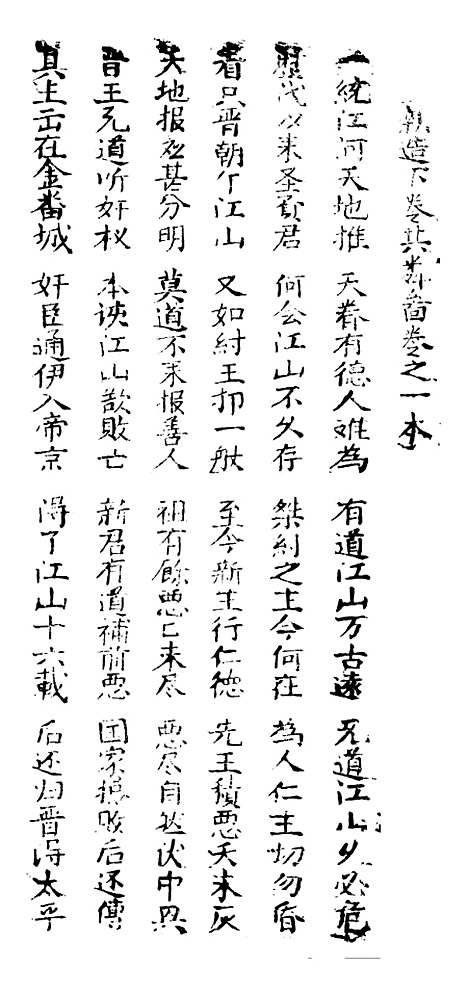 造下卷其卷之一本
一統江河天地推 天眷有德人难為 有道江山万古遠 无道江山久必危
歷代以来圣賢君 何会江山不久存 桀紂之主今何在 為人仁主切勿昏
看只晋朝个江山 又如紂王一般 至今新主行仁德 先王積悪天未灰
天地报应甚分明 莫道不来报善人 祖有餘悪己未尽 悪尽自然伏中兴
晋王无道听奸权 本该江山敗亡 新君有道補前悪 国家敗后还傳
其主击在金番城 奸臣通伊入帝京 得了江山十六載 后还归晋得太平